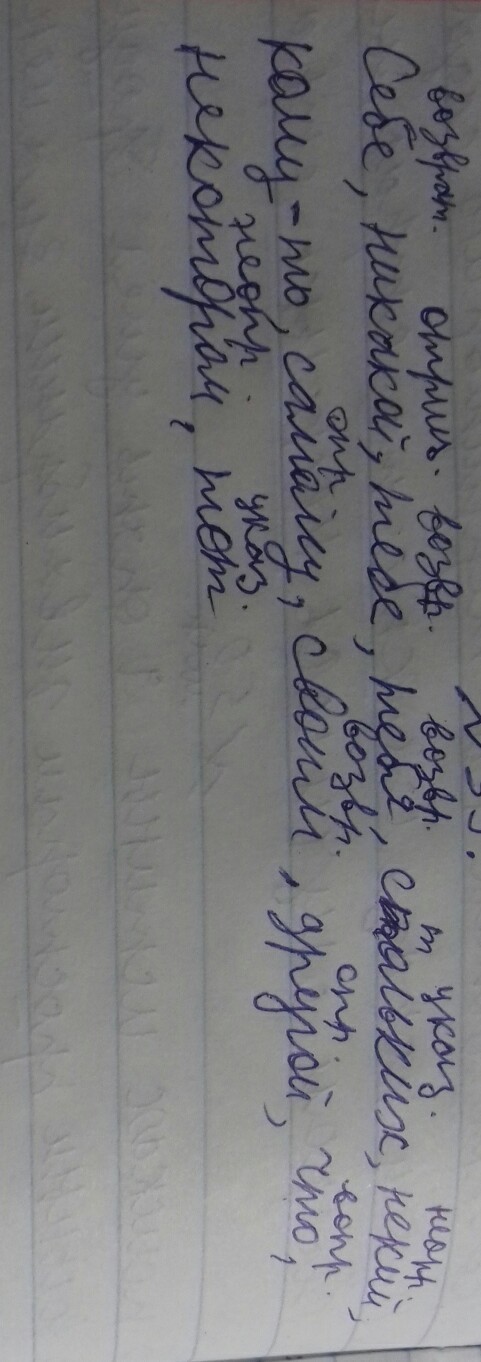 N 35.
возврат. отриц. возвр. возвр. т указ. неопр.
Себе, никакой, тебе, тебя, стольких, некий,
опр. возвр. опр. вопр.
кому-то, самому, своим, другой, что,
неопр. указ.
некоторым, тот